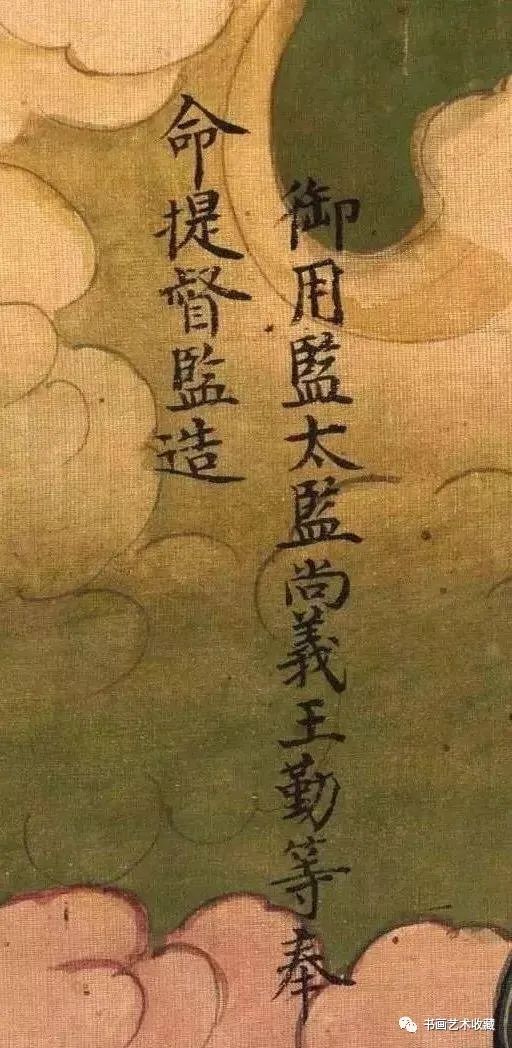 御用監太監尚義王勤等奉
命提督監造
书画艺术收藏